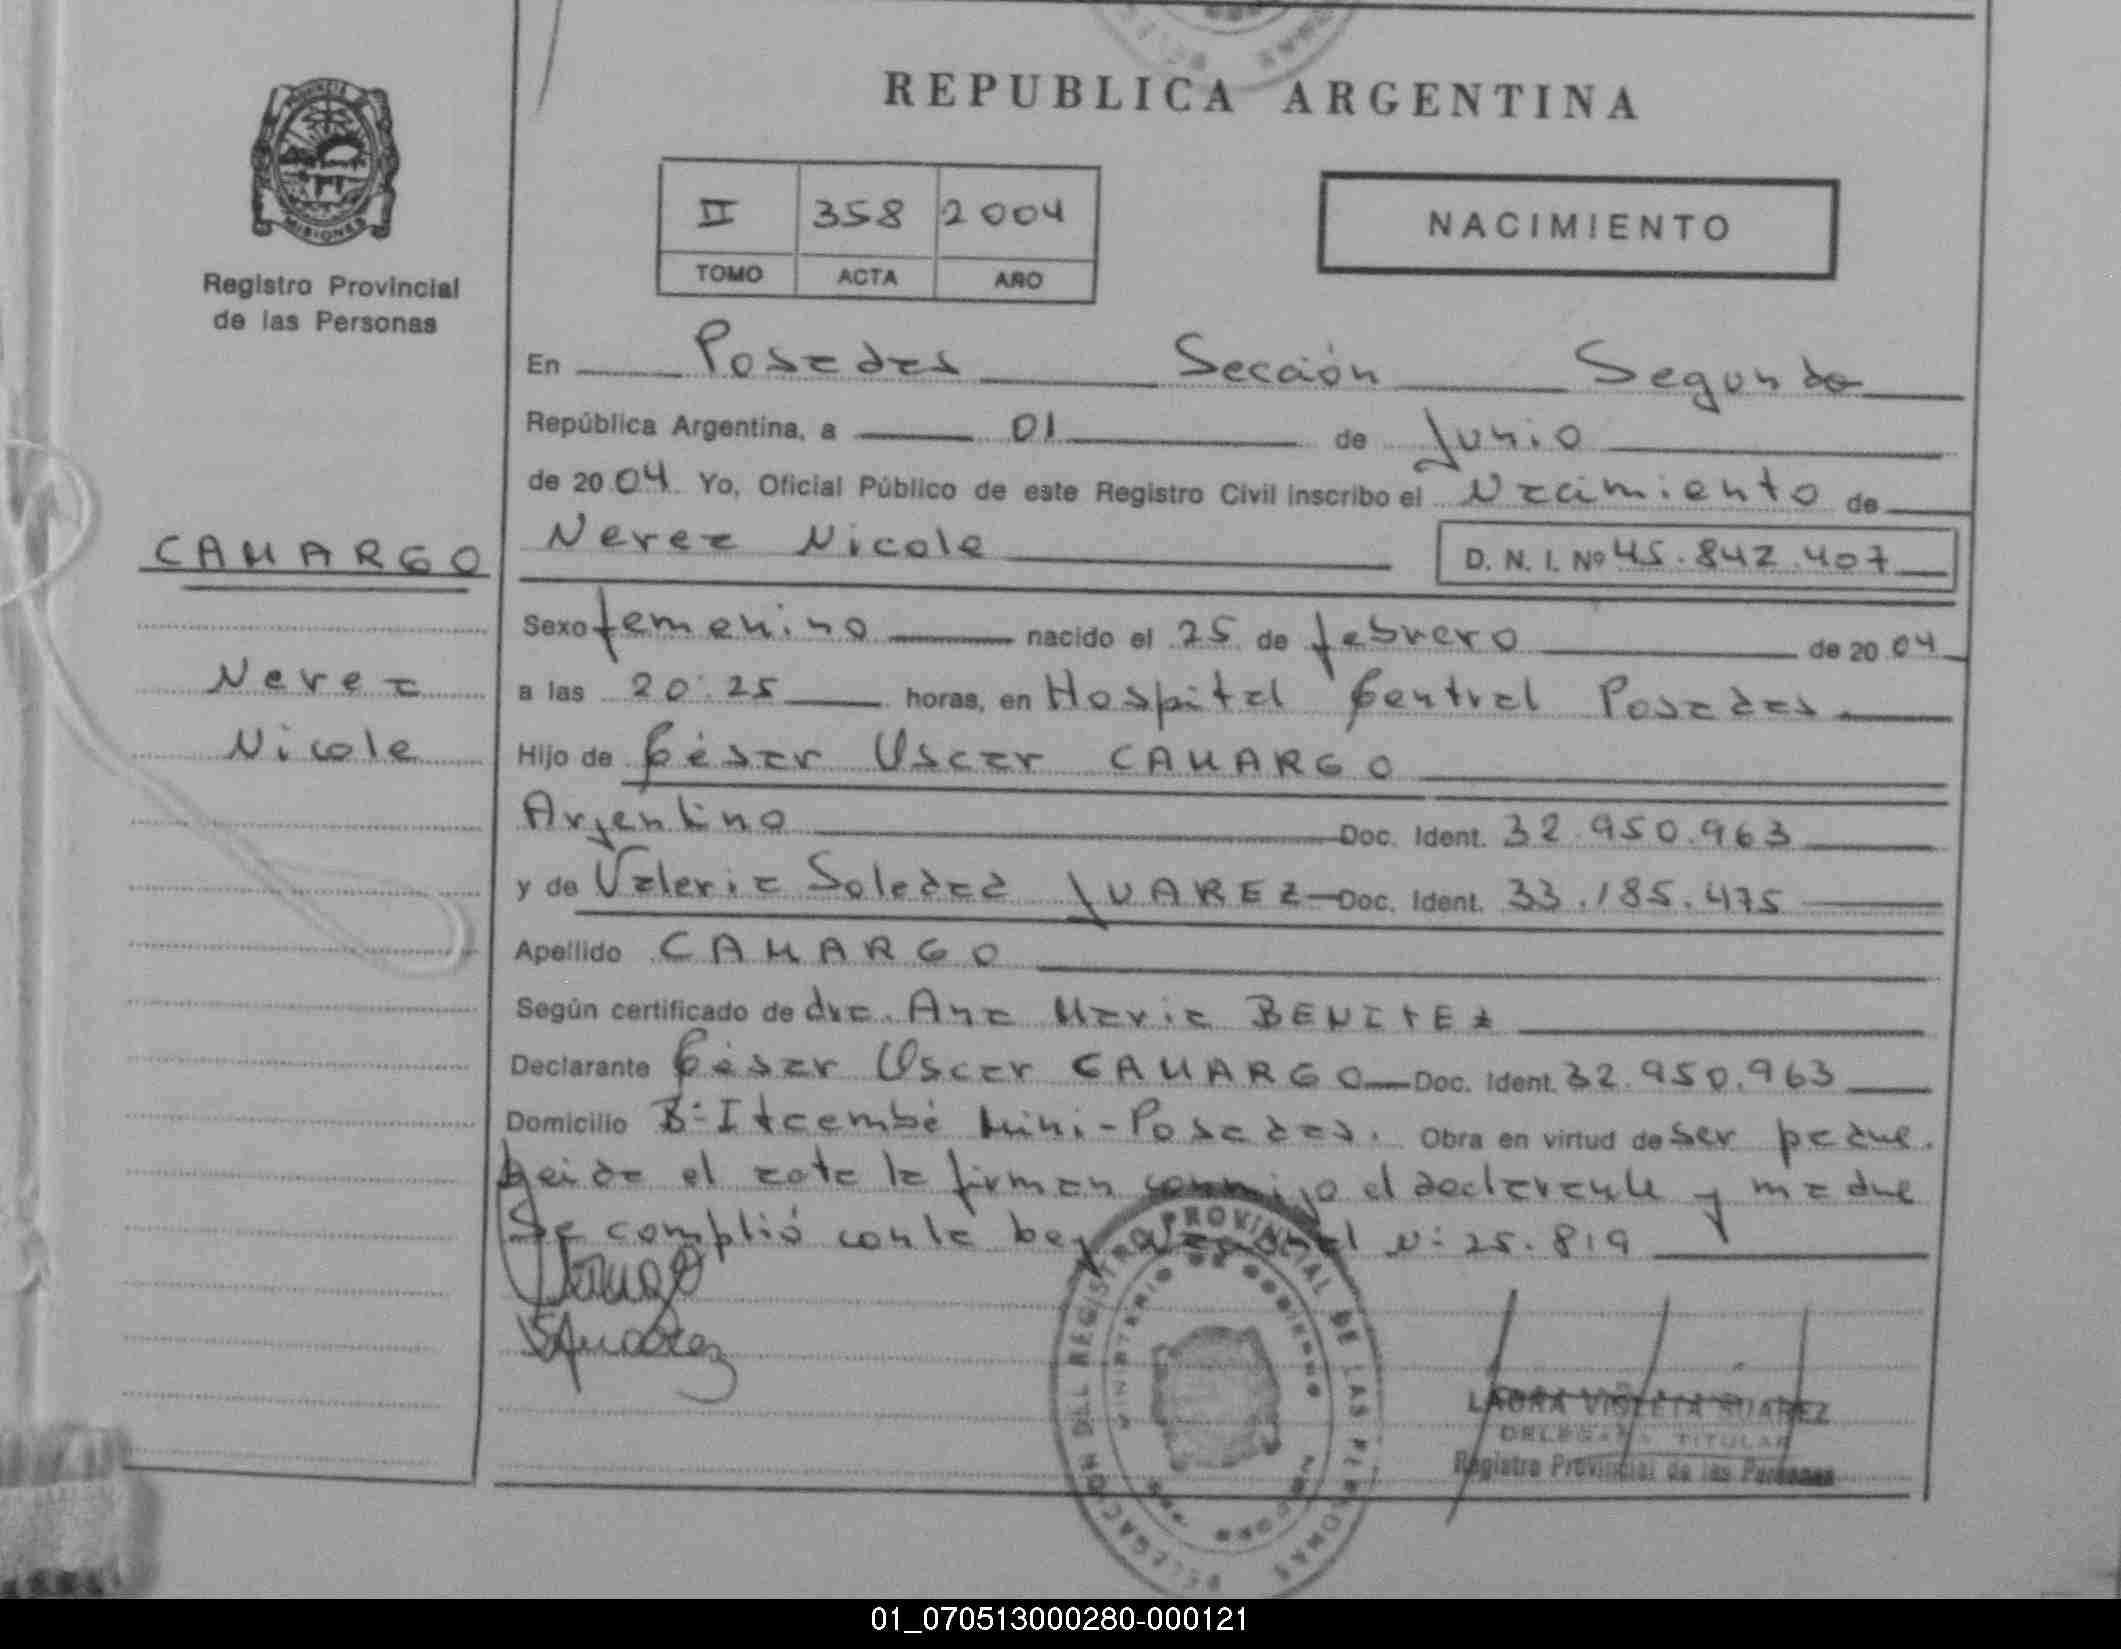 REPUBLICA ARGENTINA
PROVINCIA
MISIONES
Registro Provincial
de las Personas
II 358 2004
TOMO ACTA AÑO
NACIMIENTO
En Posadas Sección Segunda
República Argentina, a 01 de Junio
de 2004 Yo, Oficial Público de este Registro Civil inscribo el Nacimiento de
Nerea Nicole
D. N. I. Nº 45.842.407
CAMARGO
Nerea
Nicole
Sexo femenino nacido el 25 de febrero de 2004
a las 20:25 horas, en Hospital Central Posadas
Hijo de César Oscar CAMARGO
Argentino Doc. Ident. 32.950.963
y de Valeria Soledad JUAREZ Doc. Ident. 33.185.475
Apellido CAMARGO
Según certificado de dra. Ana Maria BENITEZ
Declarante César Oscar CAMARGO Doc. Ident. 32.950.963
Domicilio Bº Itaembé Mini-Posadas. Obra en virtud de ser padre.
Leida el acta la firman conmigo el declarante y madre
Se complió con la Ley Nº 25.819
DELEGACION DEL REGISTRO PROVINCIAL DE LAS PERSONAS
MINISTERIO DE GOBIERNO
LAURA VIOLETA SUAREZ
DELEGADA TITULAR
Registro Provincial de las Personas
01_070513000280-000121